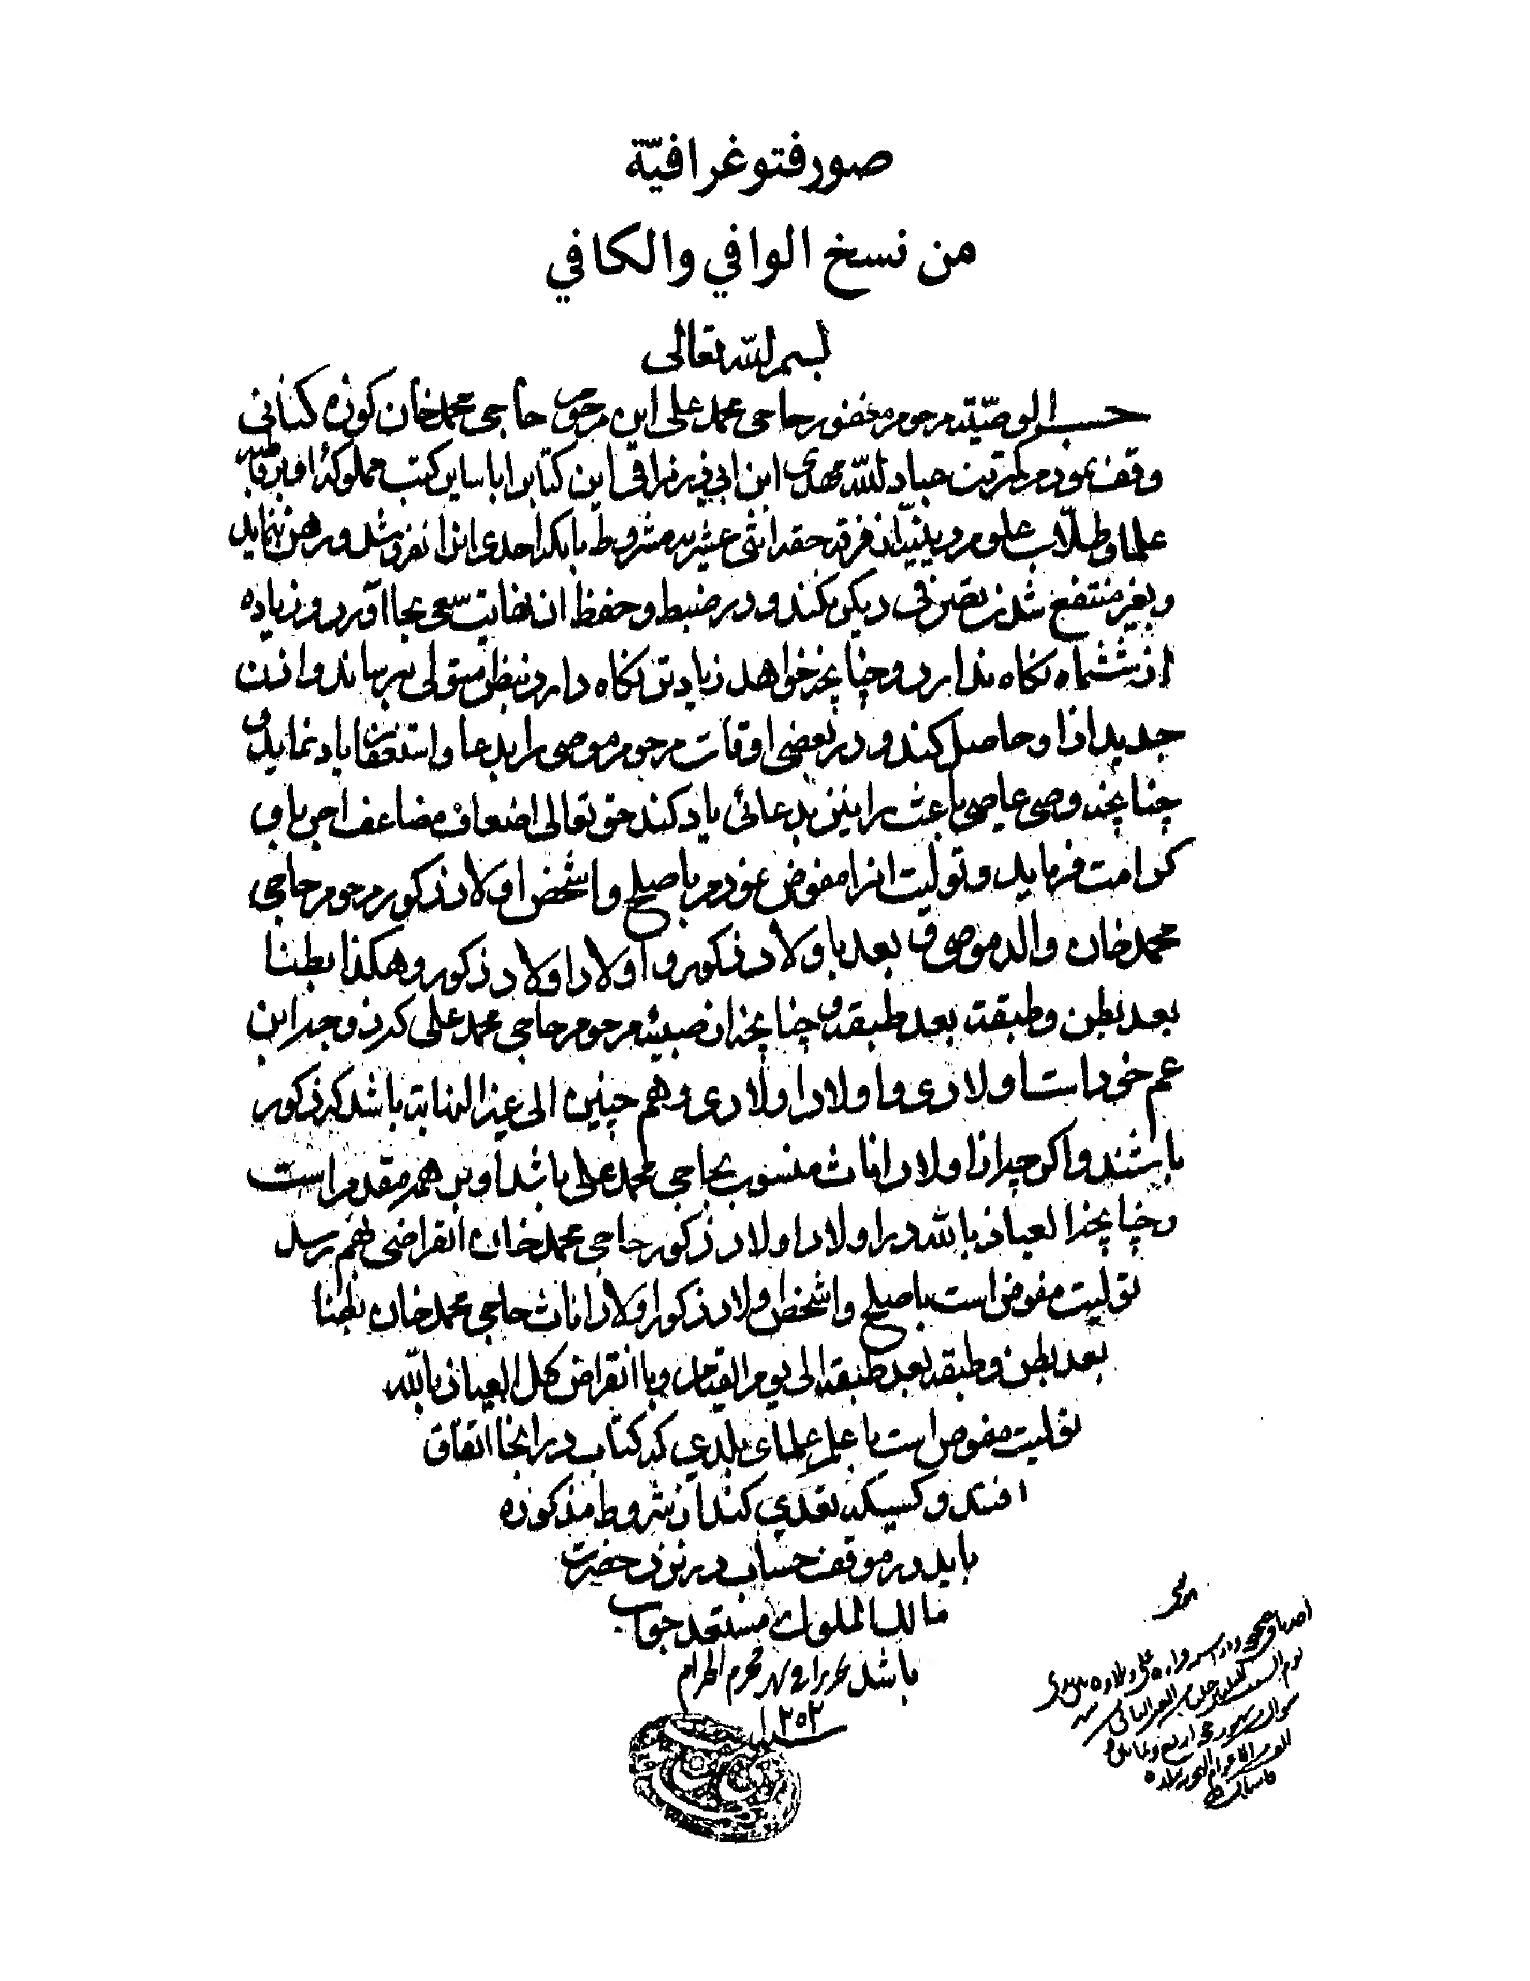 صور فتوغرافيّة
من نسخ الوافي والكافي
بسم الله تعالى
حسب الوصيّة مرحوم مغفور حاجى محمد على ابن مرحوم حاجى محمد خان كوزه كنانى
وقف نمودم كمترين عباد الله مهدى ابن ابي ذر نراقى اين كتابرا با ساير كتب مملوكه او بر قاطبه
علما و طلّاب علوم دينيّه از فرقه حقه اثنى عشريه مشروط بانكه احدى انرا نفروشد و رهن ننمايد
و بغير منتفع شدن تصرفى ديكر نكند و در ضبط و حفظ ان نهايت سعى بجا اورد و زياده
از ششماه نكاه ندارد و چنانچه خواهد زيادتر نكاه دارد بنظر متولى برساند و اذن
جديد از او حاصل كند و در بعضى اوقات مرحوم موصى را بدعا و استغفار ياد نمايد و
چنانچه وصى عاصى باعث را نيز بدعائى ياد كند حق تعالى اضعاف مضاعف اجر باو
كرامت فرمايد و توليت انرا مفوض نمودم باصلح و اشخص اولاد ذكور مرحوم حاجى
محمد خان والد موصى و بعد باولاد ذكور و اولاد اولاد ذكور و هكذا بطنا
بعد بطن و طبقة بعد طبقه و چنانچه از صبيه مرحوم حاجى محمد على كه زوجه ابن
عم خود است اولادى و اولاد اولادى و هم چنين الى غير النهايه باشد كه ذكور
باشند و اكر چه از اولاد اناث منسوب بحاجى محمد على باشد او بر همه مقدم است
و چنانچه العياذ بالله در اولاد اولاد ذكور حاجى محمد خان انقراضى بهم رسد
توليت مفوض است باصلح و اشخص اولاد ذكور اولاد اناث حاجى محمد خان بطنا
بعد بطن و طبقه بعد طبقه الى يوم القيام و با انقراض كل العياذ بالله
توليت مفوض است با علم علماى بلدي كه كتاب در انجا اتفاق
افتد و كسيكه تعدي كند از شروط مذكوره
بايد در موقف حساب در نزد حضرت
مالك الملوك مستعد جواب
باشد تحريرا فى شهر محرم الحرام
١٢٥٢